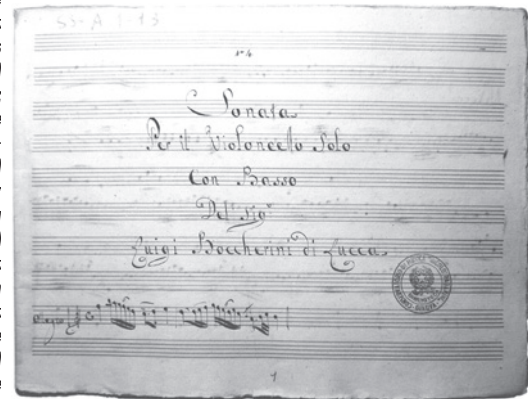 SS-A 1-13
N° 4
Sonata
Per il Violoncello Solo
Con Basso
Del Sig.r
Luigi Boccherini di Lucca
1